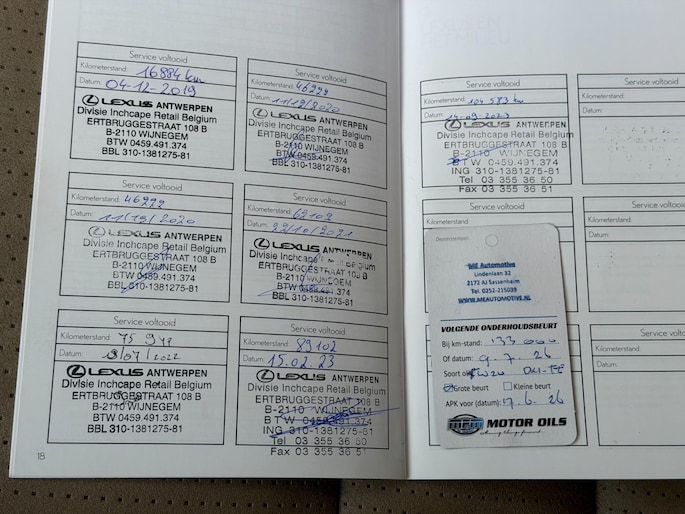 Service voltooid
Kilometerstand: 16884 km
Datum: 04-12-2019
LEXUS ANTWERPEN
Divisie Inchcape Retail Belgium
ERTBRUGGESTRAAT 108 B
B-2110 WIJNEGEM
BTW 0459.491.374
BBL 310-1381275-81
Service voltooid
Kilometerstand: 46222
Datum: 11/12/2020
LEXUS ANTWERPEN
Divisie Inchcape Retail Belgium
ERTBRUGGESTRAAT 108 B
B-2110 WIJNEGEM
BTW 0459.491.374
BBL 310-1381275-81
Service voltooid
Kilometerstand: 46222
Datum: 11/12/2020
LEXUS ANTWERPEN
Divisie Inchcape Retail Belgium
ERTBRUGGESTRAAT 108 B
B-2110 WIJNEGEM
BTW 0459.491.374
BBL 310-1381275-81
Service voltooid
Kilometerstand:
Datum: 22/10/2021
LEXUS ANTWERPEN
Divisie Inchcape Retail Belgium
ERTBRUGGESTRAAT 108 B
B-2110 WIJNEGEM
BTW 0459.491.374
BBL 310-1381275-81
Service voltooid
Kilometerstand:
Datum: /07/2022
LEXUS ANTWERPEN
Divisie Inchcape Retail Belgium
ERTBRUGGESTRAAT 108 B
B-2110 WIJNEGEM
BTW 0459.491.374
BBL 310-1381275-81
Service voltooid
Kilometerstand: 89102
Datum: 15.02.23
LEXUS ANTWERPEN
Divisie Inchcape Retail Belgium
ERTBRUGGESTRAAT 108 B
B-2110 WIJNEGEM
BTW 0459.491.374
ING 310-1381275-81
Tel 03 355 36 50
Fax 03 355 36 51
18
Service voltooid
Kilometerstand: 104583 km
Datum: 14-09-2023
LEXUS ANTWERPEN
Divisie Inchcape Retail Belgium
ERTBRUGGESTRAAT 108 B
B-2110 WIJNEGEM
BTW 0459.491.374
ING 310-1381275-81
Tel 03 355 36 50
Fax 03 355 36 51
Service voltooid
Kilometerstand:
Datum:
Service voltooid
Kilometerstand:
Datum:
ME Automotive
Lindenlaan 32
2172 AJ Sassenheim
Tel. 0252-215039
WWW.MEAUTOMOTIVE.NL
VOLGENDE ONDERHOUDSBEURT
Bij km-stand: 133 000
Of datum: 9.7.26
Soort olie
Grote beurt Kleine beurt
APK voor (datum): 17.6.26
MPM MOTOR OILS